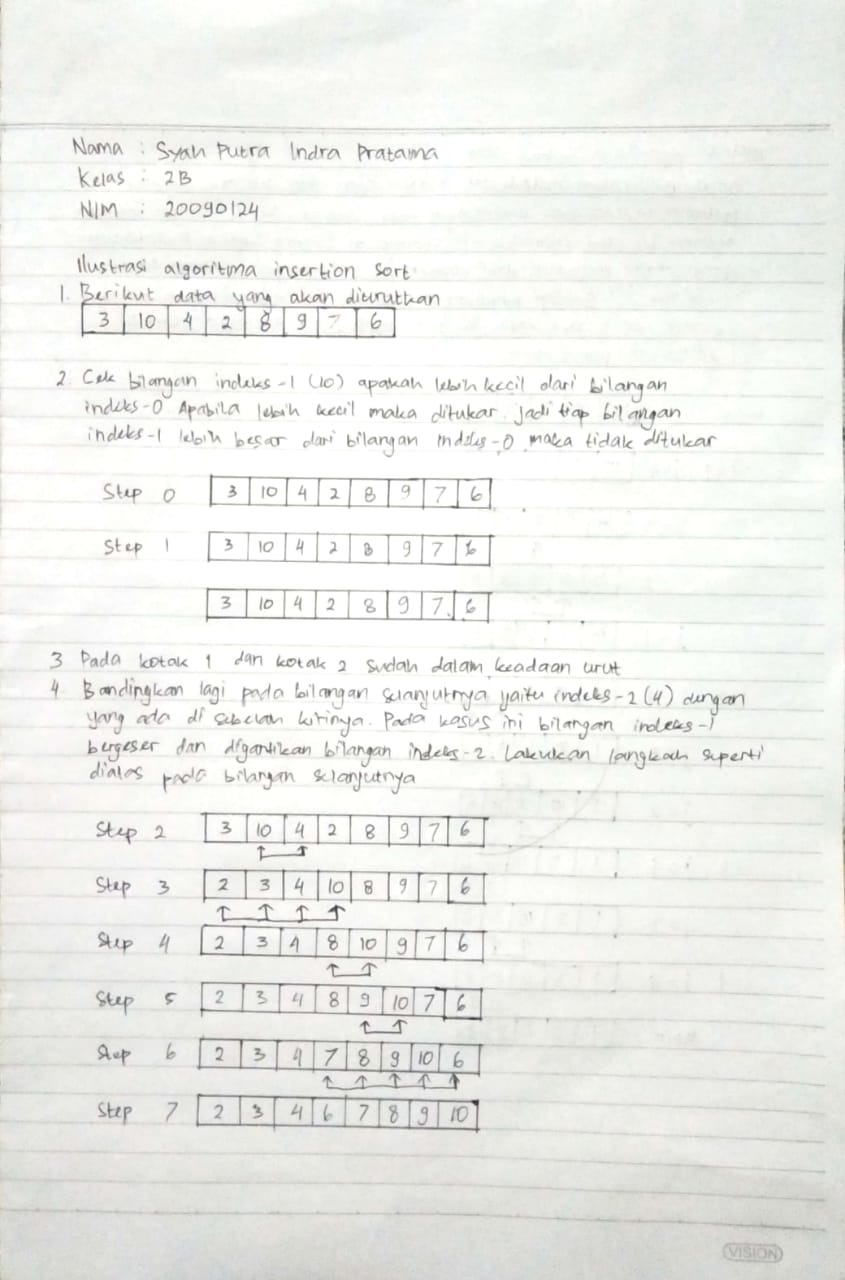 Nama : Syah Putra Indra Pratama
Kelas : 2B
NIM : 20090124
Ilustrasi algoritma insertion sort
1. Berikut data yang akan diurutkan
3 10 4 2 8 9 7 6
2. Cek bilangan indeks-1 (10) apakah lebih kecil dari bilangan
indeks-0 Apabila lebih kecil maka ditukar. Jadi tiap bilangan
indeks-1 lebih besar dari bilangan indeks-0 maka tidak ditukar
Step 0 3 10 4 2 8 9 7 6
Step 1 3 10 4 2 8 9 7 6
3 10 4 2 8 9 7 6
3 Pada kotak 1 dan kotak 2 sudah dalam keadaan urut
4 Bandingkan lagi pada bilangan selanjutnya yaitu indeks-2 (4) dengan
yang ada di sebelah kirinya. Pada kasus ini bilangan indeks-1
bergeser dan digantikan bilangan indeks-2. Lakukan langkah seperti
diatas pada bilangan selanjutnya
Step 2 3 10 4 2 8 9 7 6
Step 3 2 3 4 10 8 9 7 6
Step 4 2 3 4 8 10 9 7 6
Step 5 2 3 4 8 9 10 7 6
Step 6 2 3 4 7 8 9 10 6
Step 7 2 3 4 6 7 8 9 10
VISION